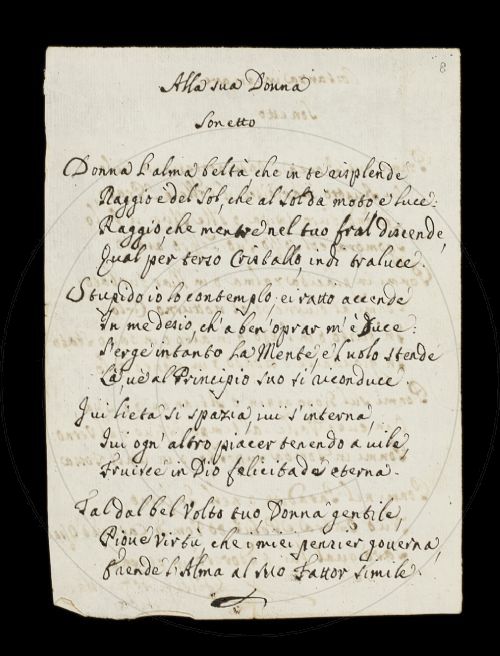 8
Alla sua Donna
Sonetto
Donna l'alma beltà che in te risplende
Raggio è del Sol, che al Sol dà moto e luce:
Raggio, che mentre nel tuo fral discende,
Qual per terso Cristallo, indi traluce.
Stupido io lo contemplo; ei ratto accende
In me desio, ch'a ben oprar m'è Duce:
S'erge intanto la Mente, e'l volo stende
Là, 've al Principio suo si riconduce
Ivi lieta si spazia, ivi s'interna,
Ivi ogn'altro piacer tenendo a vile,
Fruisce in Dio felicitade eterna.
Tal dal bel Volto tuo, Donna gentile,
Piove virtù che i miei pensier governa,
E rende l'Alma al suo Fattor simile.